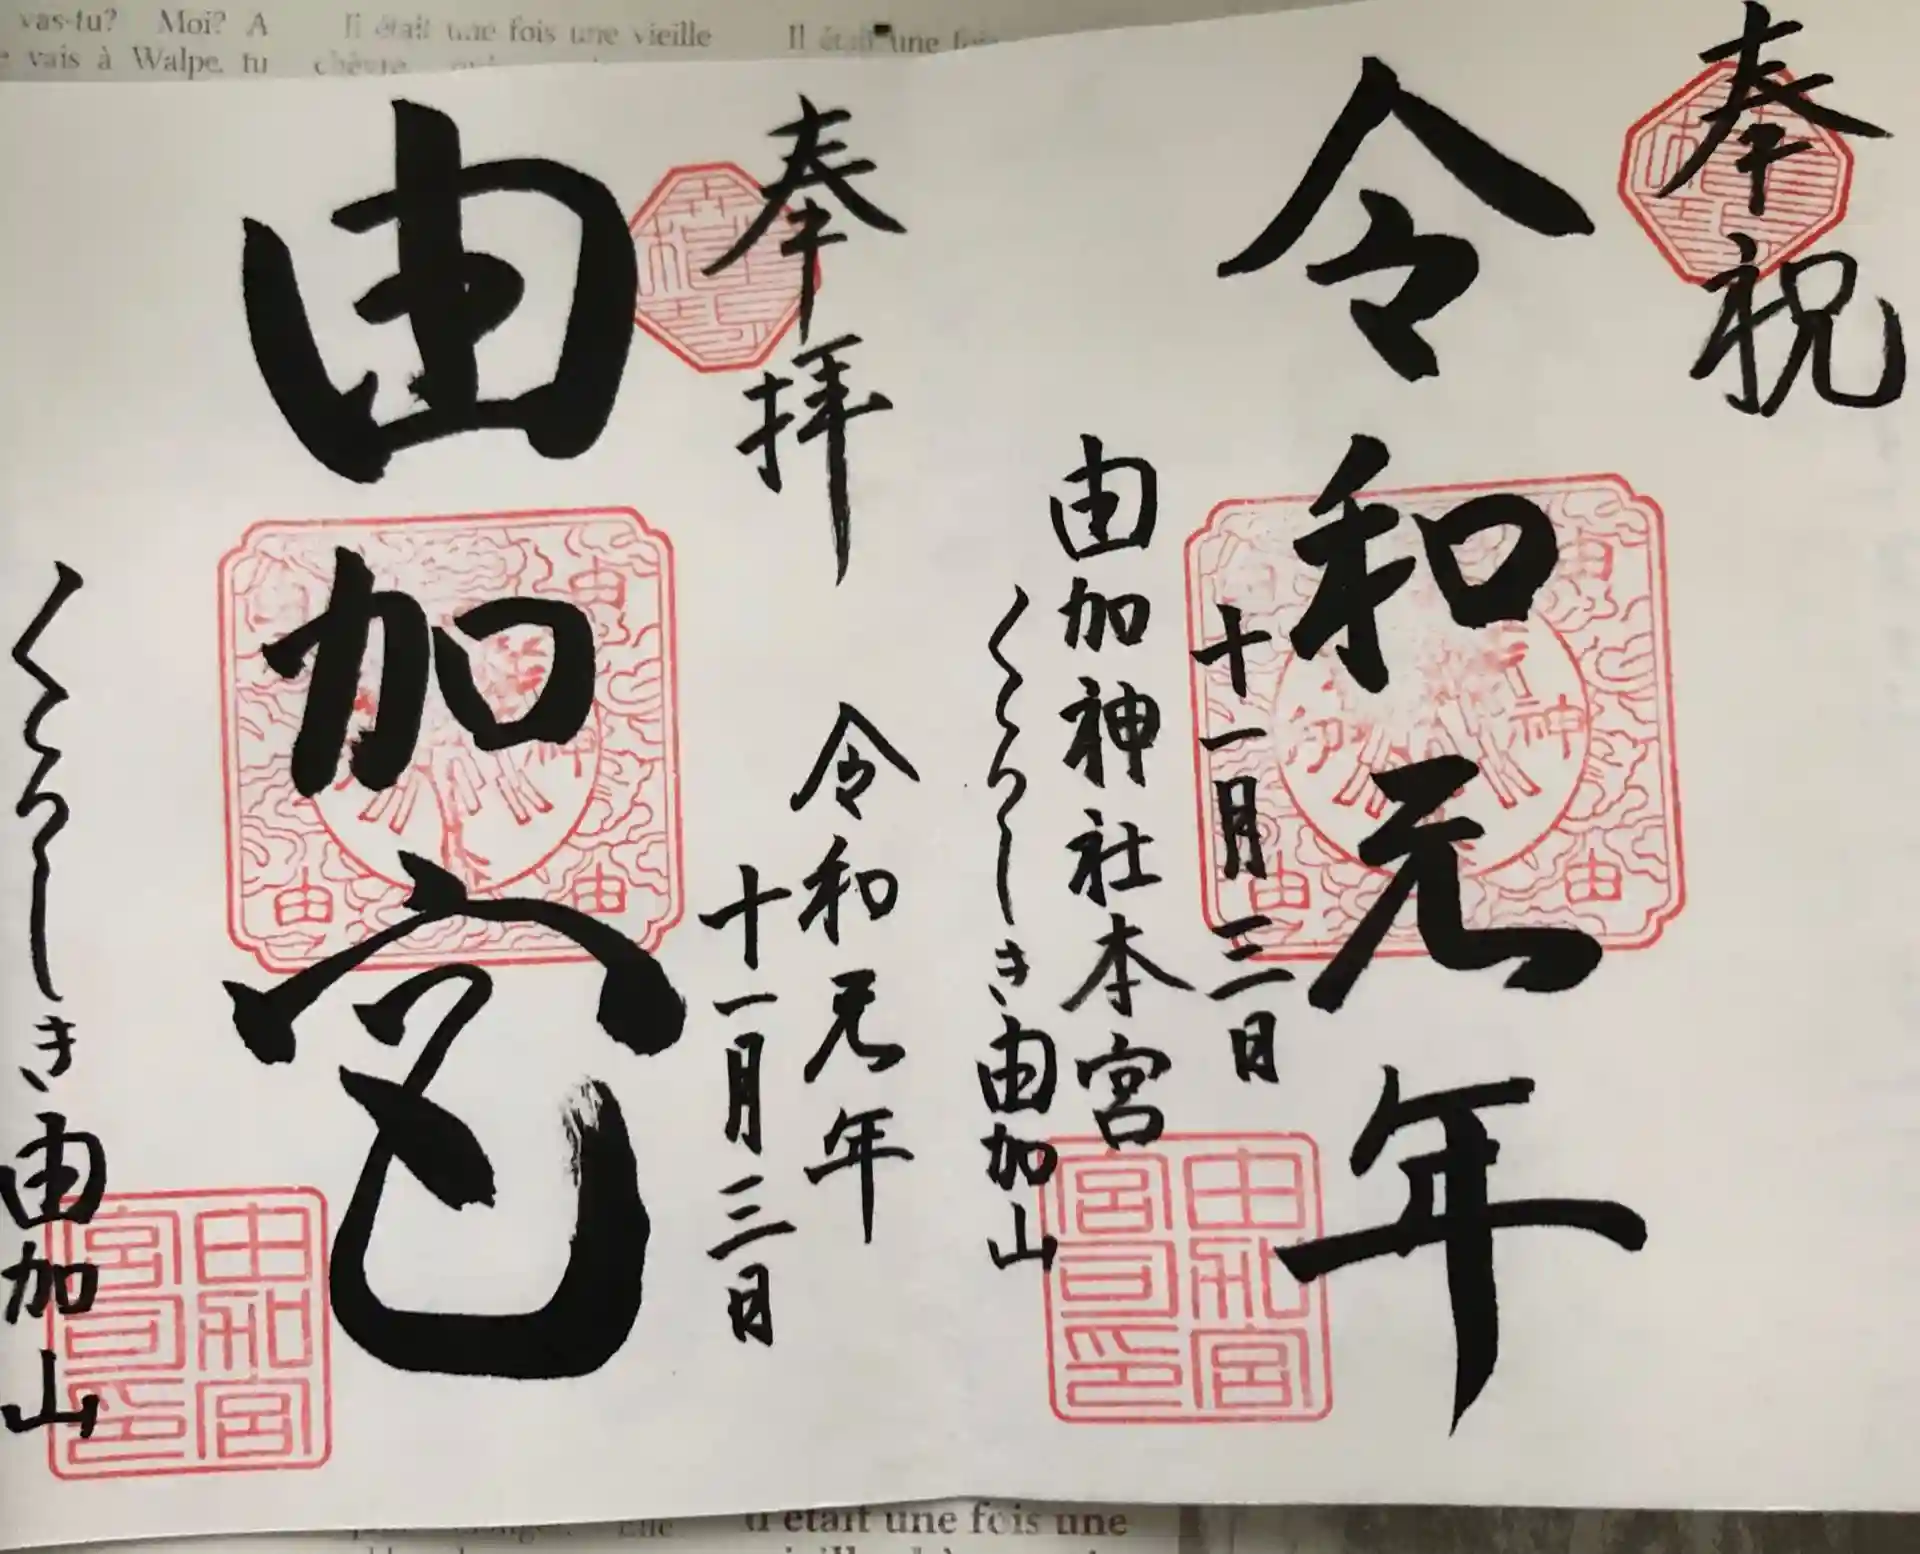 奉祝
令和元年
十一月三日
由加神社本宮
くらしき由加山
奉拝
令和元年
十一月三日
由加宮
くらしき由加山
由加宮
宮司印
由加宮
宮司印
神
由
由
神
由
由
由
vas-tu? Moi? A
vais à Walpe, tu
Il était une fois une vieille
chèvre
Il était une fois
était une fois une